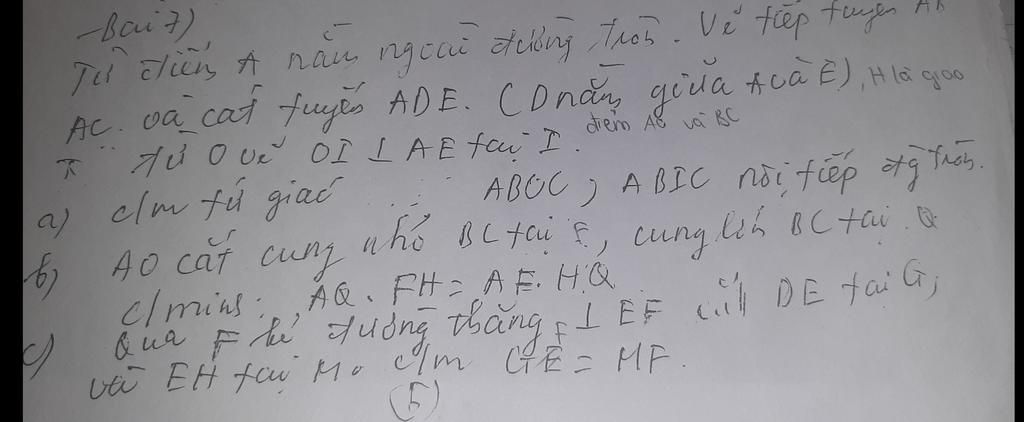 -Bài 7)
Từ điểm A nằm ngoài đường tròn. Vẽ tiếp tuyến AB
AC. và cát tuyến ADE. (D nằm giữa A và E), H là giao
điểm AO và BC
từ O vẽ OI ⊥ AE tại I.
a) c/m tứ giác ABOC; ABIC nội tiếp đg tròn.
b) AO cắt cung nhỏ BC tại F, cung lớn BC tại Q
c/minh: AQ. FH = AF. HQ
c) Qua F kẻ đường thẳng ⊥ EF cắt DE tại G;
và EH tại M. c/m GF = MF.
(5)